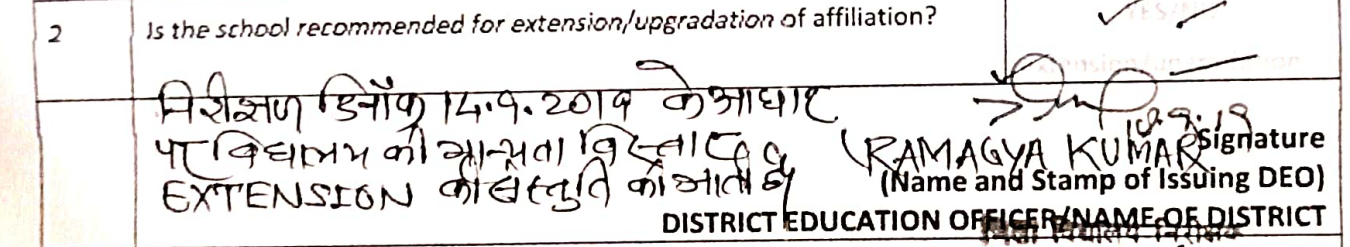 2 Is the school recommended for extension/upgradation of affiliation?
निरीक्षण दिनाँक 14.9.2019 के आधार
पर विद्यालय की मान्यता विस्तार
EXTENSION की संस्तुति की जाती है
(RAMAGYA KUMAR
Signature
(Name and Stamp of Issuing DEO)
DISTRICT EDUCATION OFFICER/NAME OF DISTRICT